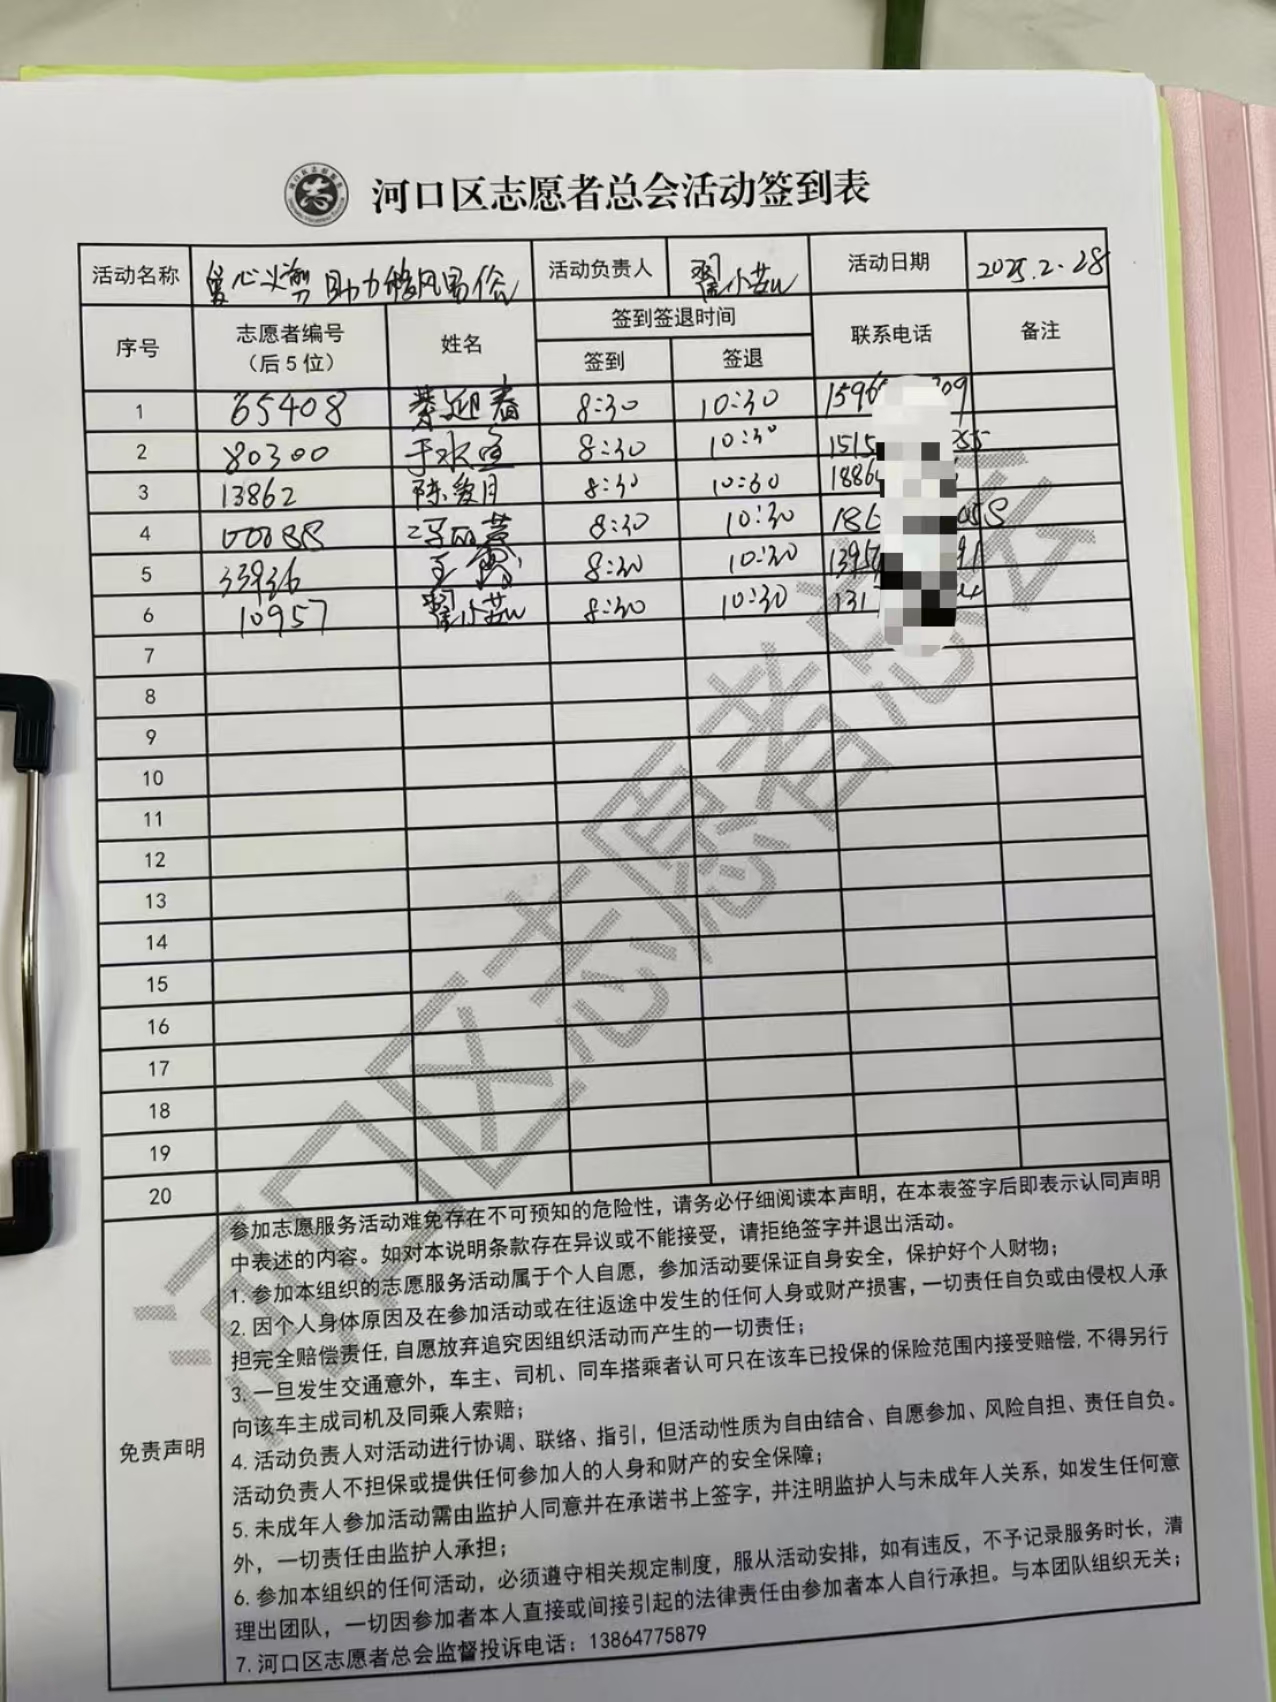 河口区志愿者总会活动签到表
活动名称 爱心义剪 助力移风易俗 活动负责人 翟小茹 活动日期 2025.2.28
序号 志愿者编号（后5位） 姓名 签到签退时间 联系电话 备注
签到 签退
1 65408 迎春 8:30 10:30 1596 09
2 80300 于水 8:30 10:30 1515 55
3 13862 陈爱月 8:30 10:30 1886
4 00088 冯丽 8:30 10:30 186 058
5 33936 王 8:30 10:30 1395 91
6 10957 翟小茹 8:30 10:30 131
7
8
9
10
11
12
13
14
15
16
17
18
19
20
免责声明
参加志愿服务活动难免存在不可预知的危险性，请务必仔细阅读本声明，在本表签字后即表示认同声明
中表述的内容。如对本说明条款存在异议或不能接受，请拒绝签字并退出活动。
1. 参加本组织的志愿服务活动属于个人自愿，参加活动要保证自身安全，保护好个人财物；
2. 因个人身体原因及在参加活动或在往返途中发生的任何人身或财产损害，一切责任自负或由侵权人承
担完全赔偿责任,自愿放弃追究因组织活动而产生的一切责任；
3. 一旦发生交通意外，车主、司机、同车搭乘者认可只在该车已投保的保险范围内接受赔偿,不得另行
向该车主成司机及同乘人索赔；
4. 活动负责人对活动进行协调、联络、指引，但活动性质为自由结合、自愿参加、风险自担、责任自负。
活动负责人不担保或提供任何参加人的人身和财产的安全保障；
5. 未成年人参加活动需由监护人同意并在承诺书上签字，并注明监护人与未成年人关系，如发生任何意
外，一切责任由监护人承担；
6. 参加本组织的任何活动，必须遵守相关规定制度，服从活动安排，如有违反，不予记录服务时长，清
理出团队，一切因参加者本人直接或间接引起的法律责任由参加者本人自行承担。与本团队组织无关；
7. 河口区志愿者总会监督投诉电话：13864775879
河口区志愿者总会